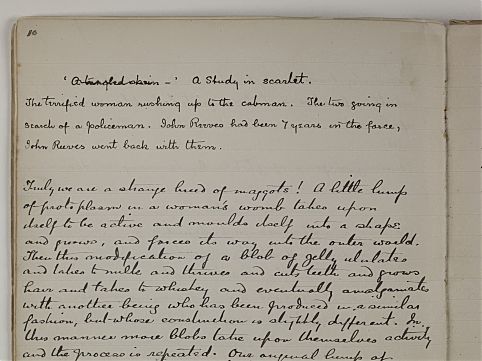 86
' A tangled skein - ' A Study in scarlet.
The terrified woman rushing up to the cabman. The two going in
search of a policeman. John Reeves had been 7 years in the force,
John Reeves went back with them.
Truly we are a strange breed of maggots! A little lump
of protoplasm in a woman's womb takes upon
itself to be active and moulds itself into a shape
and grows, and forces its way into the outer world.
Then this modification of a blob of jelly ululates
and takes to milk and thrives and cuts teeth and grows
hair and takes to whiskey and eventually amalgamates
with another being who has been produced in a similar
fashion, but whose construction is slightly different. In
this manner more blobs take upon themselves activity
and the process is repeated. Our lump of